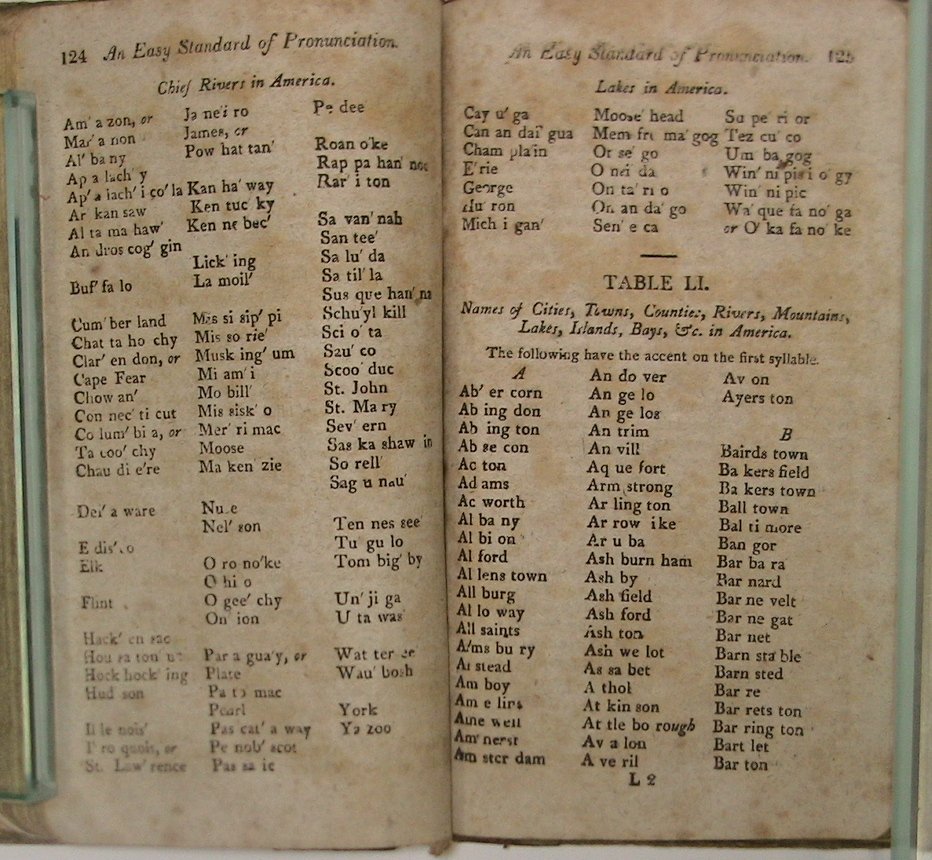 124 An Easy Standard of Pronunciation.
Chief Rivers in America.
Am' a zon, or
Mar' a non
Al' ba ny
Ap a lach' y
Ap' a lach' i co' la
Ar kan saw
Al ta ma haw'
An dros cog' gin
Buf' fa lo
Cum' ber land
Chat ta ho chy
Clar' en don, or
Cape Fear
Chow an'
Con nec' ti cut
Co lum' bi a, or
Ta coo' chy
Chau di e're
Del' a ware
E dis' o
Elk
Flint
Hack' en sac
Hou sa ton uc
Hock hock' ing
Hud son
Il le nois'
I' ro quois, or
St. Law' rence
Ja nei ro
James, or
Pow hat tan'
Kan ha' way
Ken tuc' ky
Ken ne bec'
Lick' ing
La moil'
Mis si sip' pi
Mis so rie'
Musk ing' um
Mi am' i
Mo bill'
Mis sisk' o
Mer' ri mac
Moose
Ma ken' zie
Nuse
Nel' son
O ro no'ke
O hi o
O gee' chy
On' ion
Par a gua'y, or
Plate
Pa to mac
Pearl
Pas cat' a way
Pe nob' scot
Pas sa ic
Pe dee
Roan o'ke
Rap pa han' noc
Rar' i ton
Sa van' nah
San tee'
Sa lu' da
Sa til' la
Sus que han' na
Schu'yl kill
Sci o' ta
Sau' co
Scoo' duc
St. John
St. Ma ry
Sev' ern
Sas ka shaw in
So rell'
Sag u nau'
Ten nes see'
Tu gu lo
Tom big' by
Un' ji ga
U ta was'
Wat ter ee'
Wau' bosh
York
Ya zoo
An Easy Standard of Pronunciation. 125
Lakes in America.
Cay u' ga
Can an dai' gua
Cham pla'in
E' rie
George
Hu' ron
Mich i gan'
Moose' head
Mem fre ma' gog
Ot se' go
O nei da
On ta' ri o
On an da' go
Sen' e ca
Su pe' ri or
Tez cu' co
Um ba gog
Win' ni pis i o' gy
Win' ni pic
Wa' que fa no' ga
or O' ka fa no' ke
TABLE LI.
Names of Cities, Towns, Counties, Rivers, Mountains,
Lakes, Islands, Bays, &c. in America.
The following have the accent on the first syllable.
A
Ab' er corn
Ab ing don
Ab ing ton
Ab se con
Ac ton
Ad ams
Ac worth
Al ba ny
Al bi on
Al ford
Al lens town
All burg
Al lo way
All saints
Alms bu ry
Al stead
Am boy
Am e lins
Ame well
Am' herst
Am ster dam
An do ver
An ge lo
An ge los
An trim
An vill
Aq ue fort
Arm strong
Ar ling ton
Ar row ike
Ar u ba
Ash burn ham
Ash by
Ash field
Ash ford
Ash ton
Ash we lot
As sa bet
A thol
At kin son
At tle bo rough
Av a lon
A ve ril
Av on
Ayers ton
B
Bairds town
Ba kers field
Ba kers town
Ball town
Bal ti more
Ban gor
Bar ba ra
Bar nard
Bar ne velt
Bar ne gat
Bar net
Barn sta ble
Barn sted
Bar re
Bar rets ton
Bar ring ton
Bart let
Bar ton
L 2